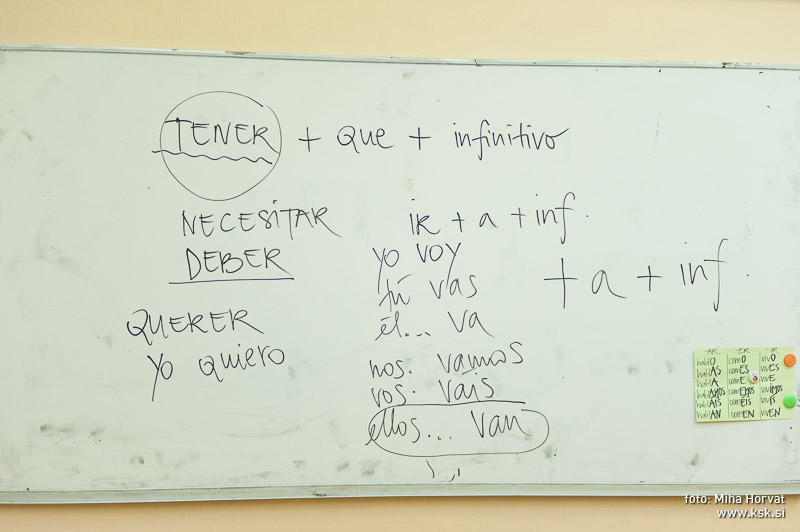 TENER + que + infinitivo
NECESITAR
DEBER
QUERER
yo quiero
ir + a + inf.
yo voy
tú vas
él... va
nos. vamos
vos. váis
ellos... van
+ a + inf.
-AR -ER -IR
hablO comO vivO
hablAS comES vivES
hablA comE vivE
hablAMOS comEMOS vivIMOS
hablAIS comEIS vivIS
hablAN comEN vivEN
foto: Miha Horvat
www.ksk.si